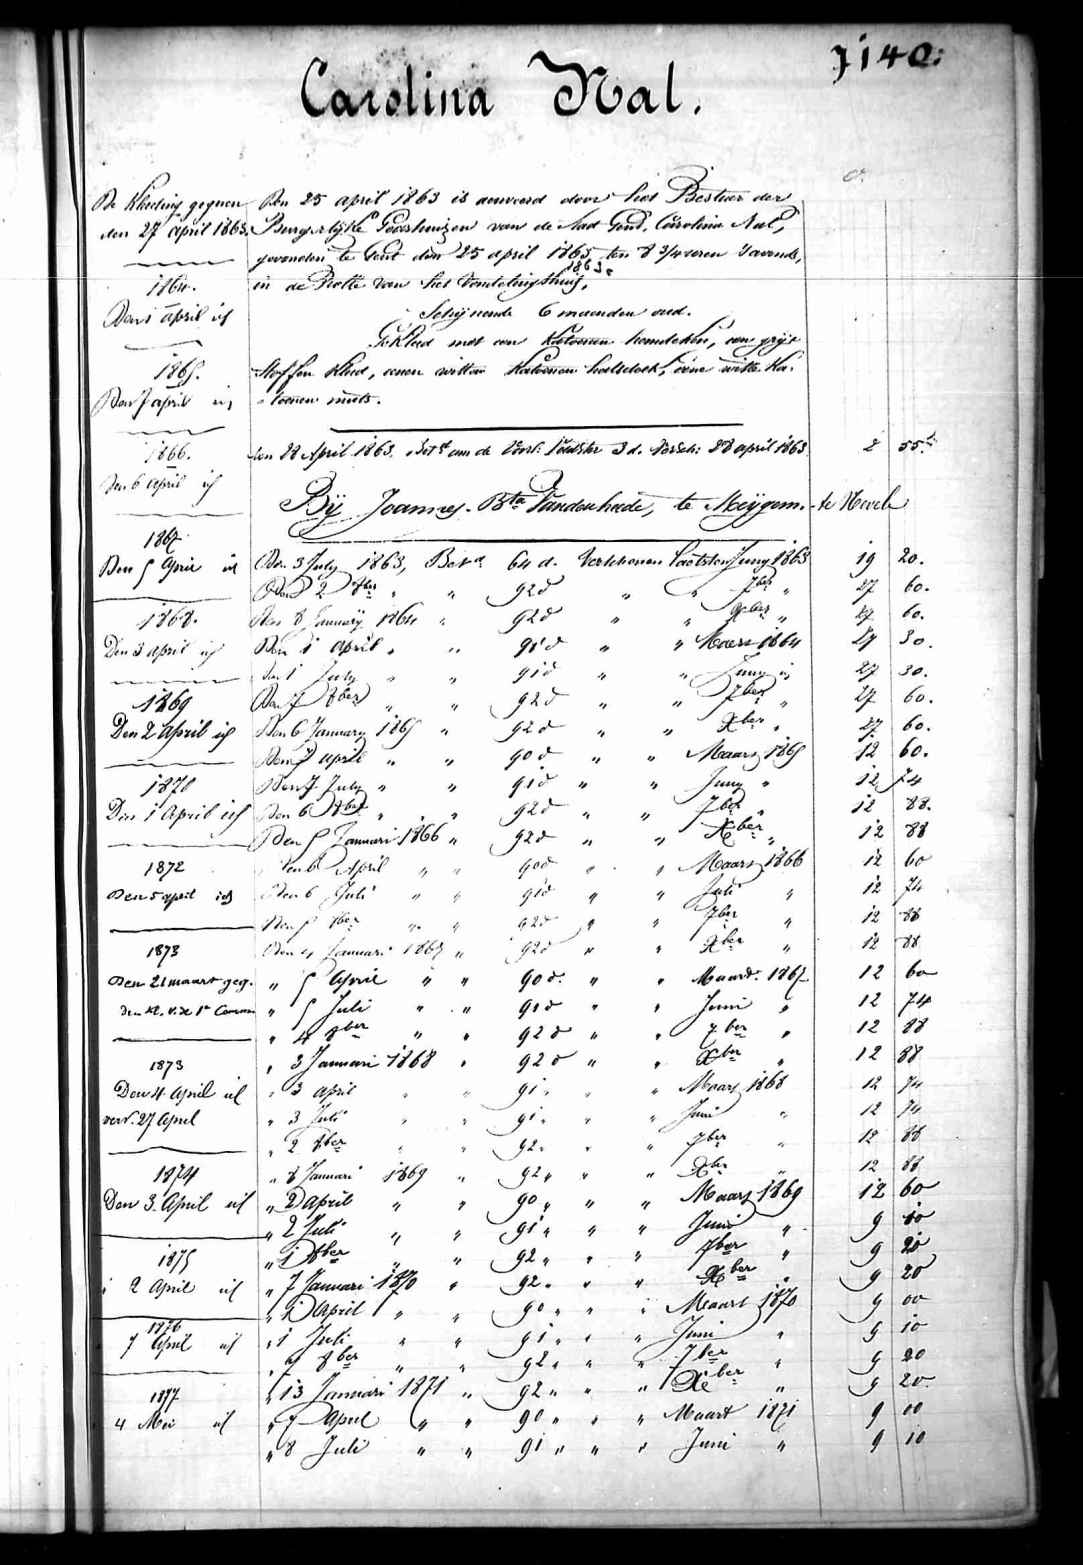 7140.
Carolina Nal.
De kleeding gegeven
den 27 april 1863.
1864.
Den 1 april id
1865.
Den 7 april id
1866.
den 6 april id
1867
Den 5 April id
1868.
Den 3 april id
1869
Den 2 April id
1870
Den 1 April id
1872
Den 5 april id
1873
Den 21 maart geg.
den kl. v. de 1e Commu
1873
Den 4 April id
verv. 27 April
1874
Den 3 April id
1875
2 April id
1876
7 April id
1877
4 Mei id
Den 25 april 1863 is aenveerd door het Bestuer der
Burgerlijke Godshuizen van de stad Gend, Carolina Nal,
gevonden te Gent den 25 april 1863 ten 8 3/4 uren 's avonds,
1863.
in de Rolle van het Vondelingshuis,
Schijnende 6 maenden oud.
Gekleed met een katoenen hemdeken, een grijs
stoffen kleed, eenen witten katoenen halsdoek, eene witte ka-
toenen muts.
den 28 April 1863. Bet. aan de Voedster 3 d. Versch: 28 april 1863 2 55
Bij Joannes-Bta Vandenheede, te Meijgem. te Nevele
Den 3 July 1863, Bet. 64 d. Verschenen laetsten Juny 1863 19 20.
Den 2 8ber " " 92 d " " 7ber " 27 60.
Den 8 January 1864 " 92 d " " Xber " 27 60.
Den 1 april " " 91 d " " Maert 1864 27 30.
Den 1 July " " 91 d " " Juny id 27 30.
Den 7 8ber " " 92 d " " 7ber " 27 60.
Den 6 January 1865 " 92 d " " Xber " 27 60.
Den 7 april " " 90 d " " Maart 1865 12 60.
Den 7 July " " 91 d " " Juny " 12 74
Den 6 8ber " " 92 d " " 7ber " 12 88.
Den 5 Januari 1866 " 92 d " " Xber " 12 88
Den 6 April " " 90 d " " Maart 1866 12 60
Den 6 Juli " " 91 d " " Juli " 12 74
Den 5 8ber " " 92 d " " 7ber " 12 88
Den 4 Januari 1867 " 92 d " " Xber " 12 88
" 5 April " " 90 d. " " Maart. 1867 12 60
" 5 Juli " " 91 d " " Juni " 12 74
" 4 8ber " " 92 d " " 7ber " 12 88
" 3 Januari 1868 " 92 d " " Xber " 12 88
" 3 april " " 91 " " " Maart 1868 12 74
" 3 Juli " " 91 " " " Juni " 12 74
" 2 8ber " " 92 " " " 7ber " 12 88
" 8 Januari 1869 " 92 " " " Xber " 12 88
" 2 April " " 90 " " " Maart 1869 12 60
" 2 Juli " " 91 " " " Juni " 9 10
" 1 8ber " " 92 " " " 7ber " 9 20
" 7 Januari 1870 " 92 " " " Xber " 9 20
" 1 April " " 90 " " " Maart 1870 9 00
" 1 Juli " " 91 " " " Juni " 9 10
" 7 8ber " " 92 " " " 7ber " 9 20
" 13 Januari 1871 " 92 " " " Xber " 9 20.
" 7 April " " 90 " " " Maart 1871 9 00
" 8 Juli " " 91 " " " Juni " 9 10